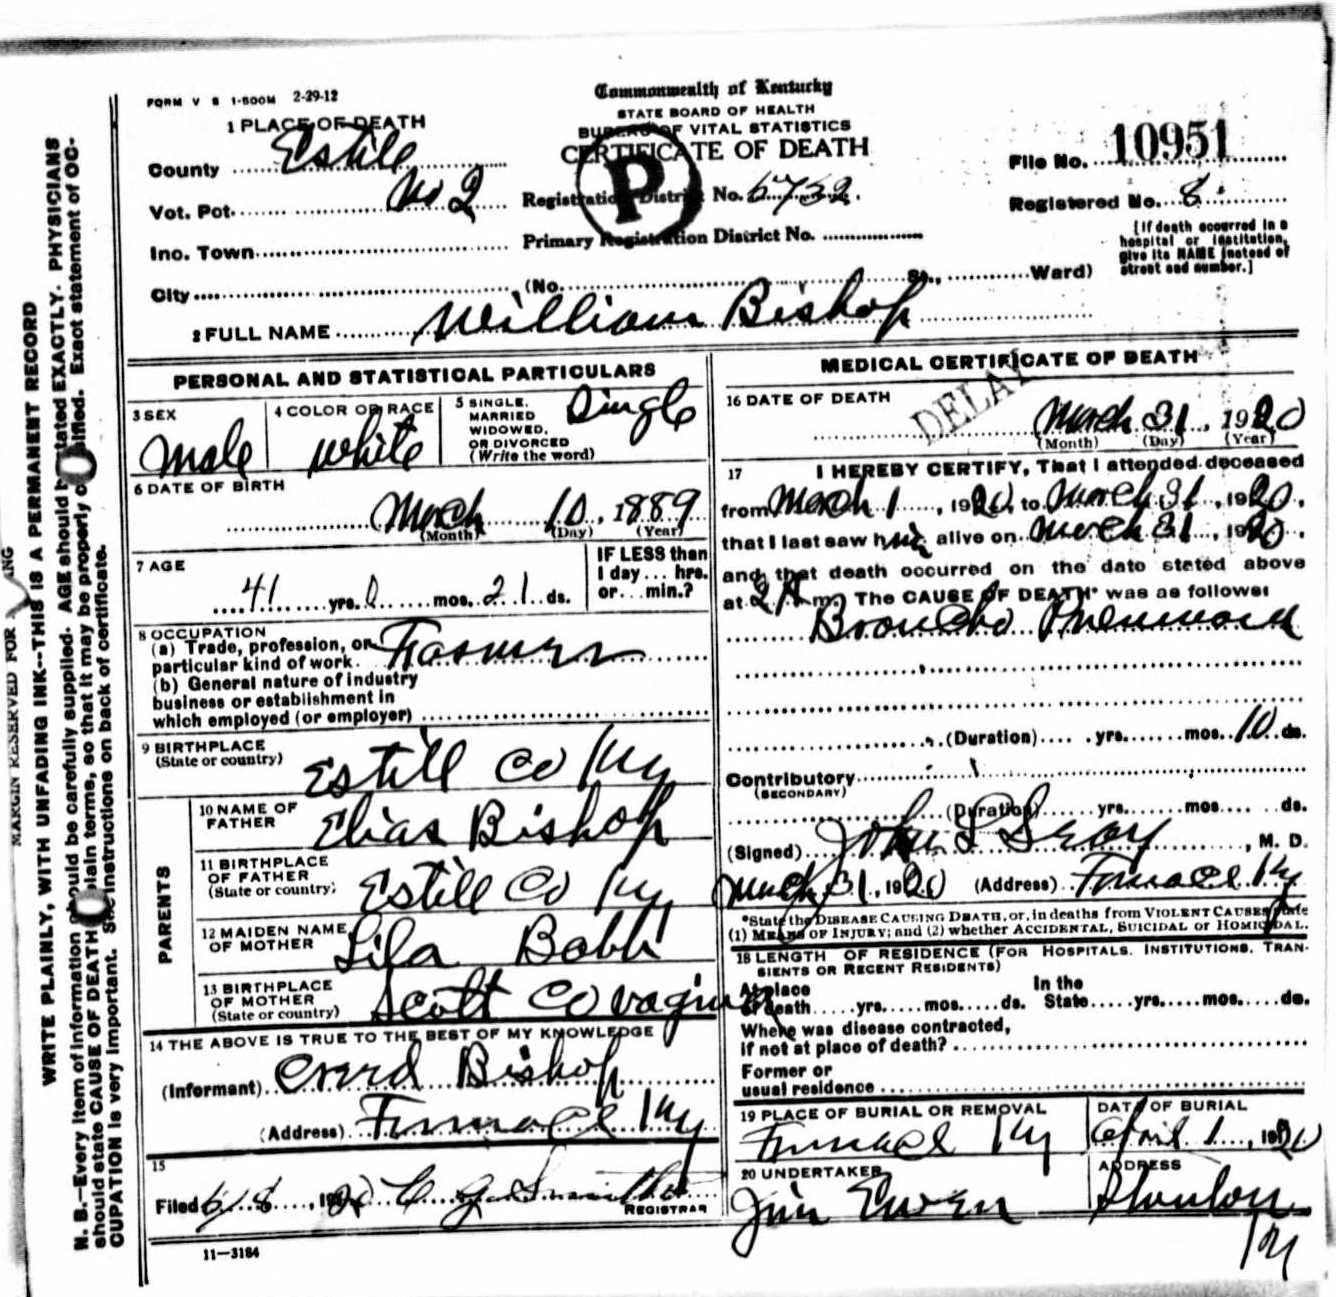 FORM V S 1-500M 2-29-12
Commonwealth of Kentucky
STATE BOARD OF HEALTH
BUREAU OF VITAL STATISTICS
CERTIFICATE OF DEATH
P
1 PLACE OF DEATH
County Estill
Vot. Pct. No 2
Inc. Town
City
Registration District No. 6732.
Primary Registration District No.
(No. St., Ward)
File No. 10951
Registered No. 8.
[If death occurred in a
hospital or institution,
give its NAME instead of
street and number.]
2 FULL NAME William Bishop
PERSONAL AND STATISTICAL PARTICULARS
3 SEX
Male
4 COLOR OR RACE
White
5 SINGLE,
MARRIED
WIDOWED,
OR DIVORCED
(Write the word)
Single
6 DATE OF BIRTH
March 10, 1889
(Month) (Day) (Year)
7 AGE
41 yrs. 0 mos. 21 ds.
IF LESS than
1 day... hrs.
or... min.?
8 OCCUPATION
(a) Trade, profession, or
particular kind of work. Farmer
(b) General nature of industry
business or establishment in
which employed (or employer)
9 BIRTHPLACE
(State or country)
Estill Co Ky
PARENTS
10 NAME OF
FATHER
Elias Bishop
11 BIRTHPLACE
OF FATHER
(State or country)
Estill Co Ky
12 MAIDEN NAME
OF MOTHER
Lila Babb
13 BIRTHPLACE
OF MOTHER
(State or country)
Scott Co
14 THE ABOVE IS TRUE TO THE BEST OF MY KNOWLEDGE
(Informant) Bishop
(Address) Furnace Ky
15
Filed 6/8, 1920
REGISTRAR
11—3184
MEDICAL CERTIFICATE OF DEATH
DELAY
16 DATE OF DEATH
March 31, 1920
(Month) (Day) (Year)
17 I HEREBY CERTIFY, That I attended deceased
from March 1, 1920, to March 31, 1920.
that I last saw him alive on March 31, 1920.
and that death occurred on the date stated above
at 2 A m. The CAUSE OF DEATH* was as follows:
Broncho Pneumonia
(Duration) yrs. mos. 10 ds.
Contributory
(SECONDARY)
(Duration) yrs. mos. ds.
(Signed) John , M. D.
March 31, 1920 (Address) Furnace Ky
*State the DISEASE CAUSING DEATH, or, in deaths from VIOLENT CAUSES, state
(1) MEANS OF INJURY; and (2) whether ACCIDENTAL, SUICIDAL or HOMICIDAL.
18 LENGTH OF RESIDENCE (FOR HOSPITALS, INSTITUTIONS, TRAN-
SIENTS OR RECENT RESIDENTS)
At place
of death yrs. mos. ds.
In the
State yrs. mos. ds.
Where was disease contracted,
if not at place of death?
Former or
usual residence
19 PLACE OF BURIAL OR REMOVAL
Furnace Ky
DATE OF BURIAL
April 1, 1920
20 UNDERTAKER
Jim Ewen
ADDRESS
Stanton
Ky
MARGIN RESERVED FOR
WRITE PLAINLY, WITH UNFADING INK--THIS IS A PERMANENT RECORD
N. B.—Every item of information should be carefully supplied. AGE should be stated EXACTLY. PHYSICIANS
should state CAUSE OF DEATH in plain terms, so that it may be properly classified. Exact statement of OC-
CUPATION is very important. See instructions on back of certificate.